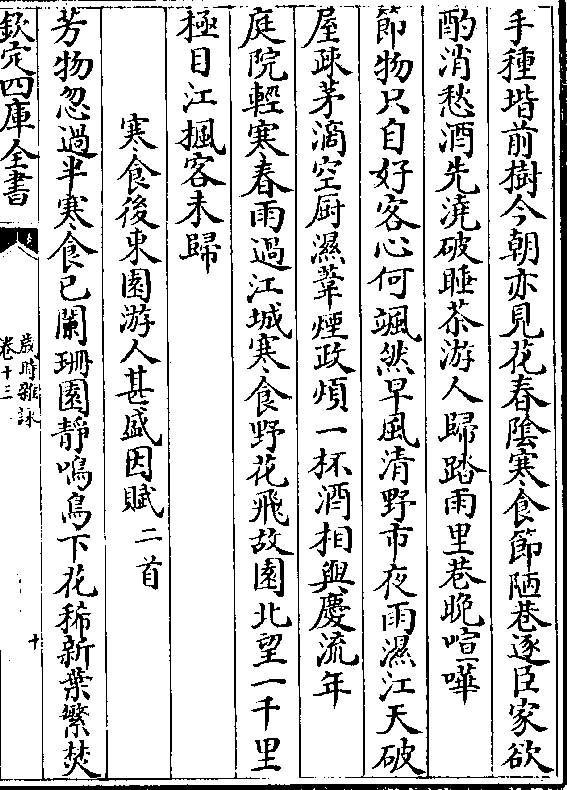 手種堦前樹今朝亦見花春隂寒食節陋巷逐臣家欲
酌消愁酒先澆破睡茶游人歸踏雨里巷晚喧嘩
節物只自好客心何颯然早風清野市夜雨濕江天破
屋疎茅滴空厨濕葦煙政煩一杯酒相與慶流年
庭院輕寒春雨過江城寒食野花飛故園北望一千里
極目江楓客未歸
寒食後東園游人甚盛因賦二首
芳物忽過半寒食已闌珊園靜鳴鳥下花稀新葉繁焚
欽定四庫全書
歲時雜詠
卷十三
十